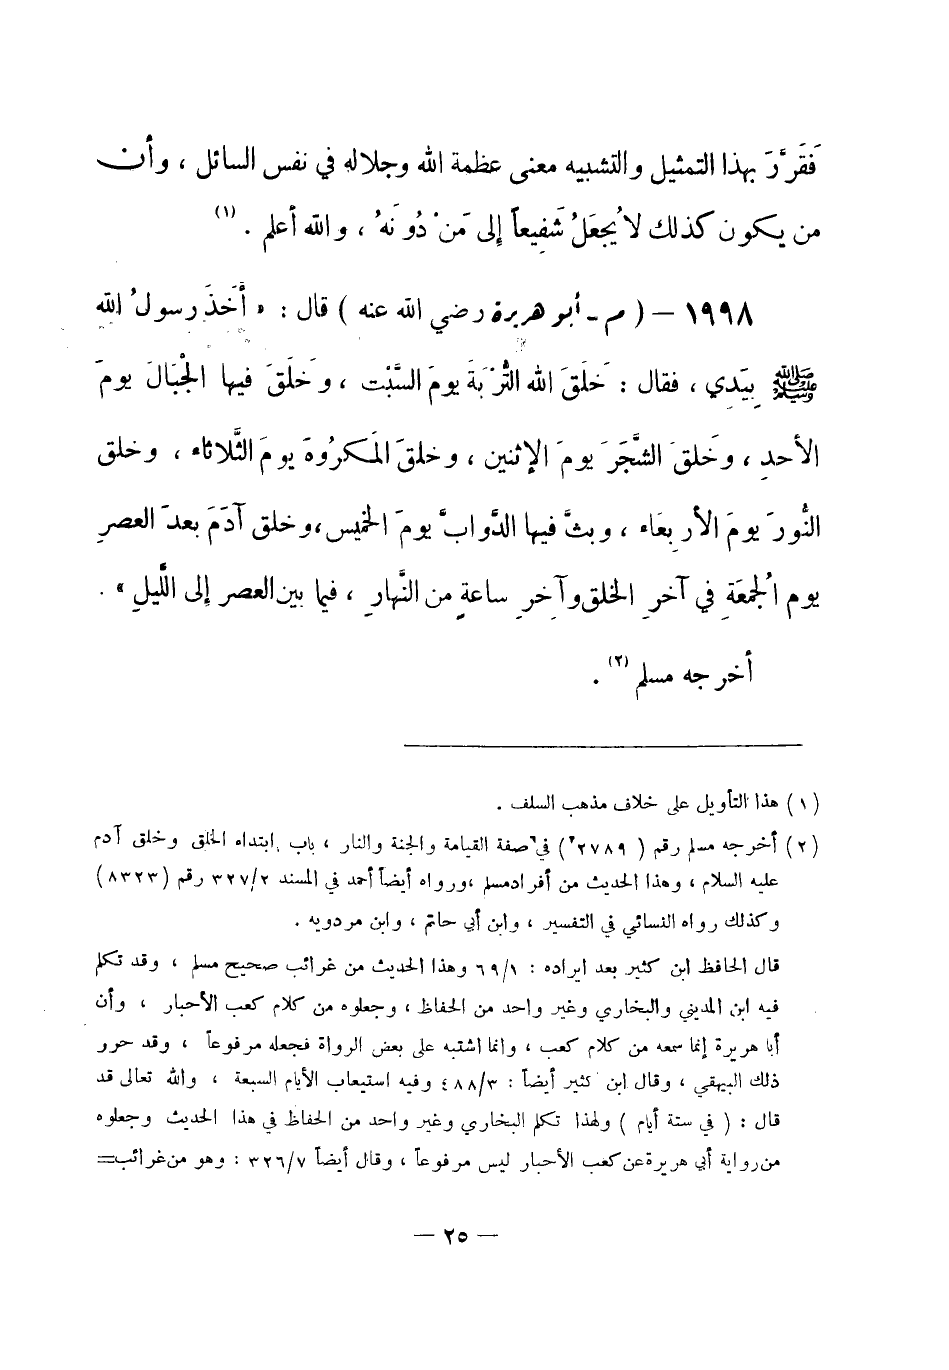 فَقَرَّرَ بهذا التمثيل والتشبيه معنى عظمة الله وجلاله في نفس السائل ، وأن
من يكون كذلك لا يُجعَلُ شَفيعاً إلى مَنْ دُونَهُ ، والله أعلم . (١)
١٩٩٨ – ( م - أبو هريرة رضي الله عنه ) قال : « أَخَذَ رسولُ الله
ﷺ بِيَدي ، فقال : خَلَقَ الله التُّرْبَةَ يومَ السَّبْت ، وخَلَقَ فيها الجْبَالَ يومَ
الأحدِ ، وخَلَقَ الشَّجَرَ يومَ الإثنين ، وخلقَ المَكروُهَ يومَ الثَّلاثاء ، وخلق
النُّورَ يومَ الأربِعَاء ، وبثَّ فيها الدَّوابَّ يومَ الخميس ، وخلق آدَمَ بعدَ العصرِ
يوم الُجمعَةِ في آخرِ الخلق وآخِرِ ساعةٍ من النَّهارِ ، فيما بين العصر إلى اللَّيلِ » .
أخرجه مسلم (٢) .
(١) هذا التأويل على خلاف مذهب السلف .
(٢) أخرجه مسلم رقم ( ٢٧٨٩ ) في صفة القيامة والجنة والنار ، باب ابتداء الخلق وخلق آدم
عليه السلام ، وهذا الحديث من أفراد مسلم ، ورواه أيضاً أحمد في المسند ٣٢٧/٢ رقم (٨٣٢٣)
وكذلك رواه النسائي في التفسير ، وابن أبي حاتم ، وابن مردويه .
قال الحافظ ابن كثير بعد ايراده : ٦٩/١ وهذا الحديث من غرائب صحيح مسلم ، وقد تكلم
فيه ابن المديني والبخاري وغير واحد من الحفاظ ، وجعلوه من كلام كعب الأحبار ، وأن
أبا هريرة إنما سمعه من كلام كعب ، وانما اشتبه على بعض الرواة فجعله مرفوعاً ، وقد حرر
ذلك البيهقي ، وقال ابن كثير أيضاً : ٤٨٨/٣ وفيه استيعاب الأيام السبعة ، والله تعالى قد
قال : ( في ستة أيام ) ولهذا تكلم البخاري وغير واحد من الحفاظ في هذا الحديث وجعلوه
من رواية أبي هريرة عن كعب الأحبار ليس مرفوعاً ، وقال أيضاً ٣٢٦/٧ : وهو من غرائب =
– ٢٥ –